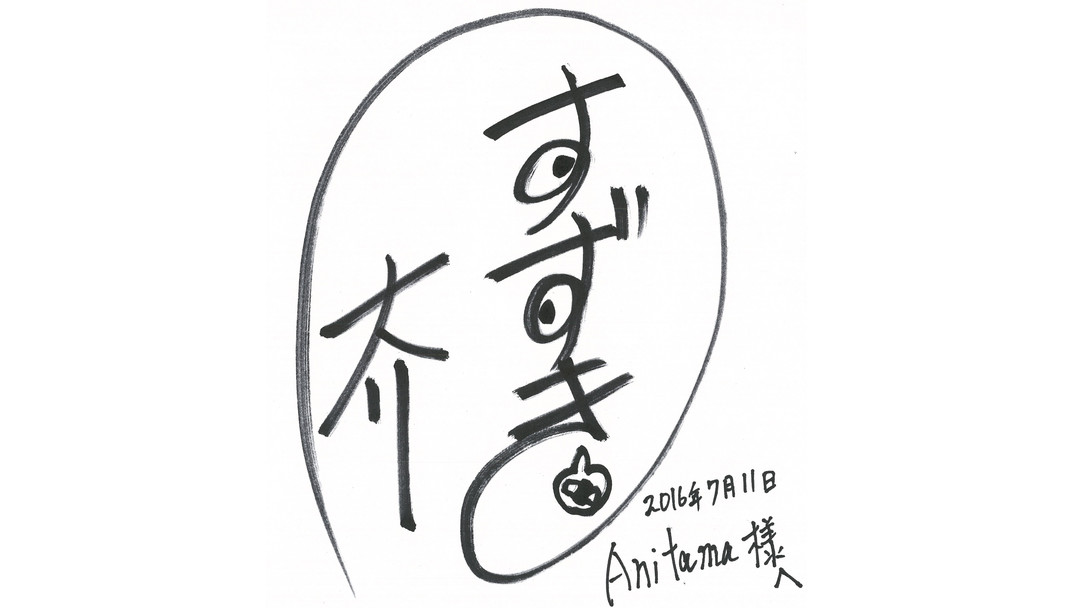 すずき
大介
2016年7月11日
Anitama様へ